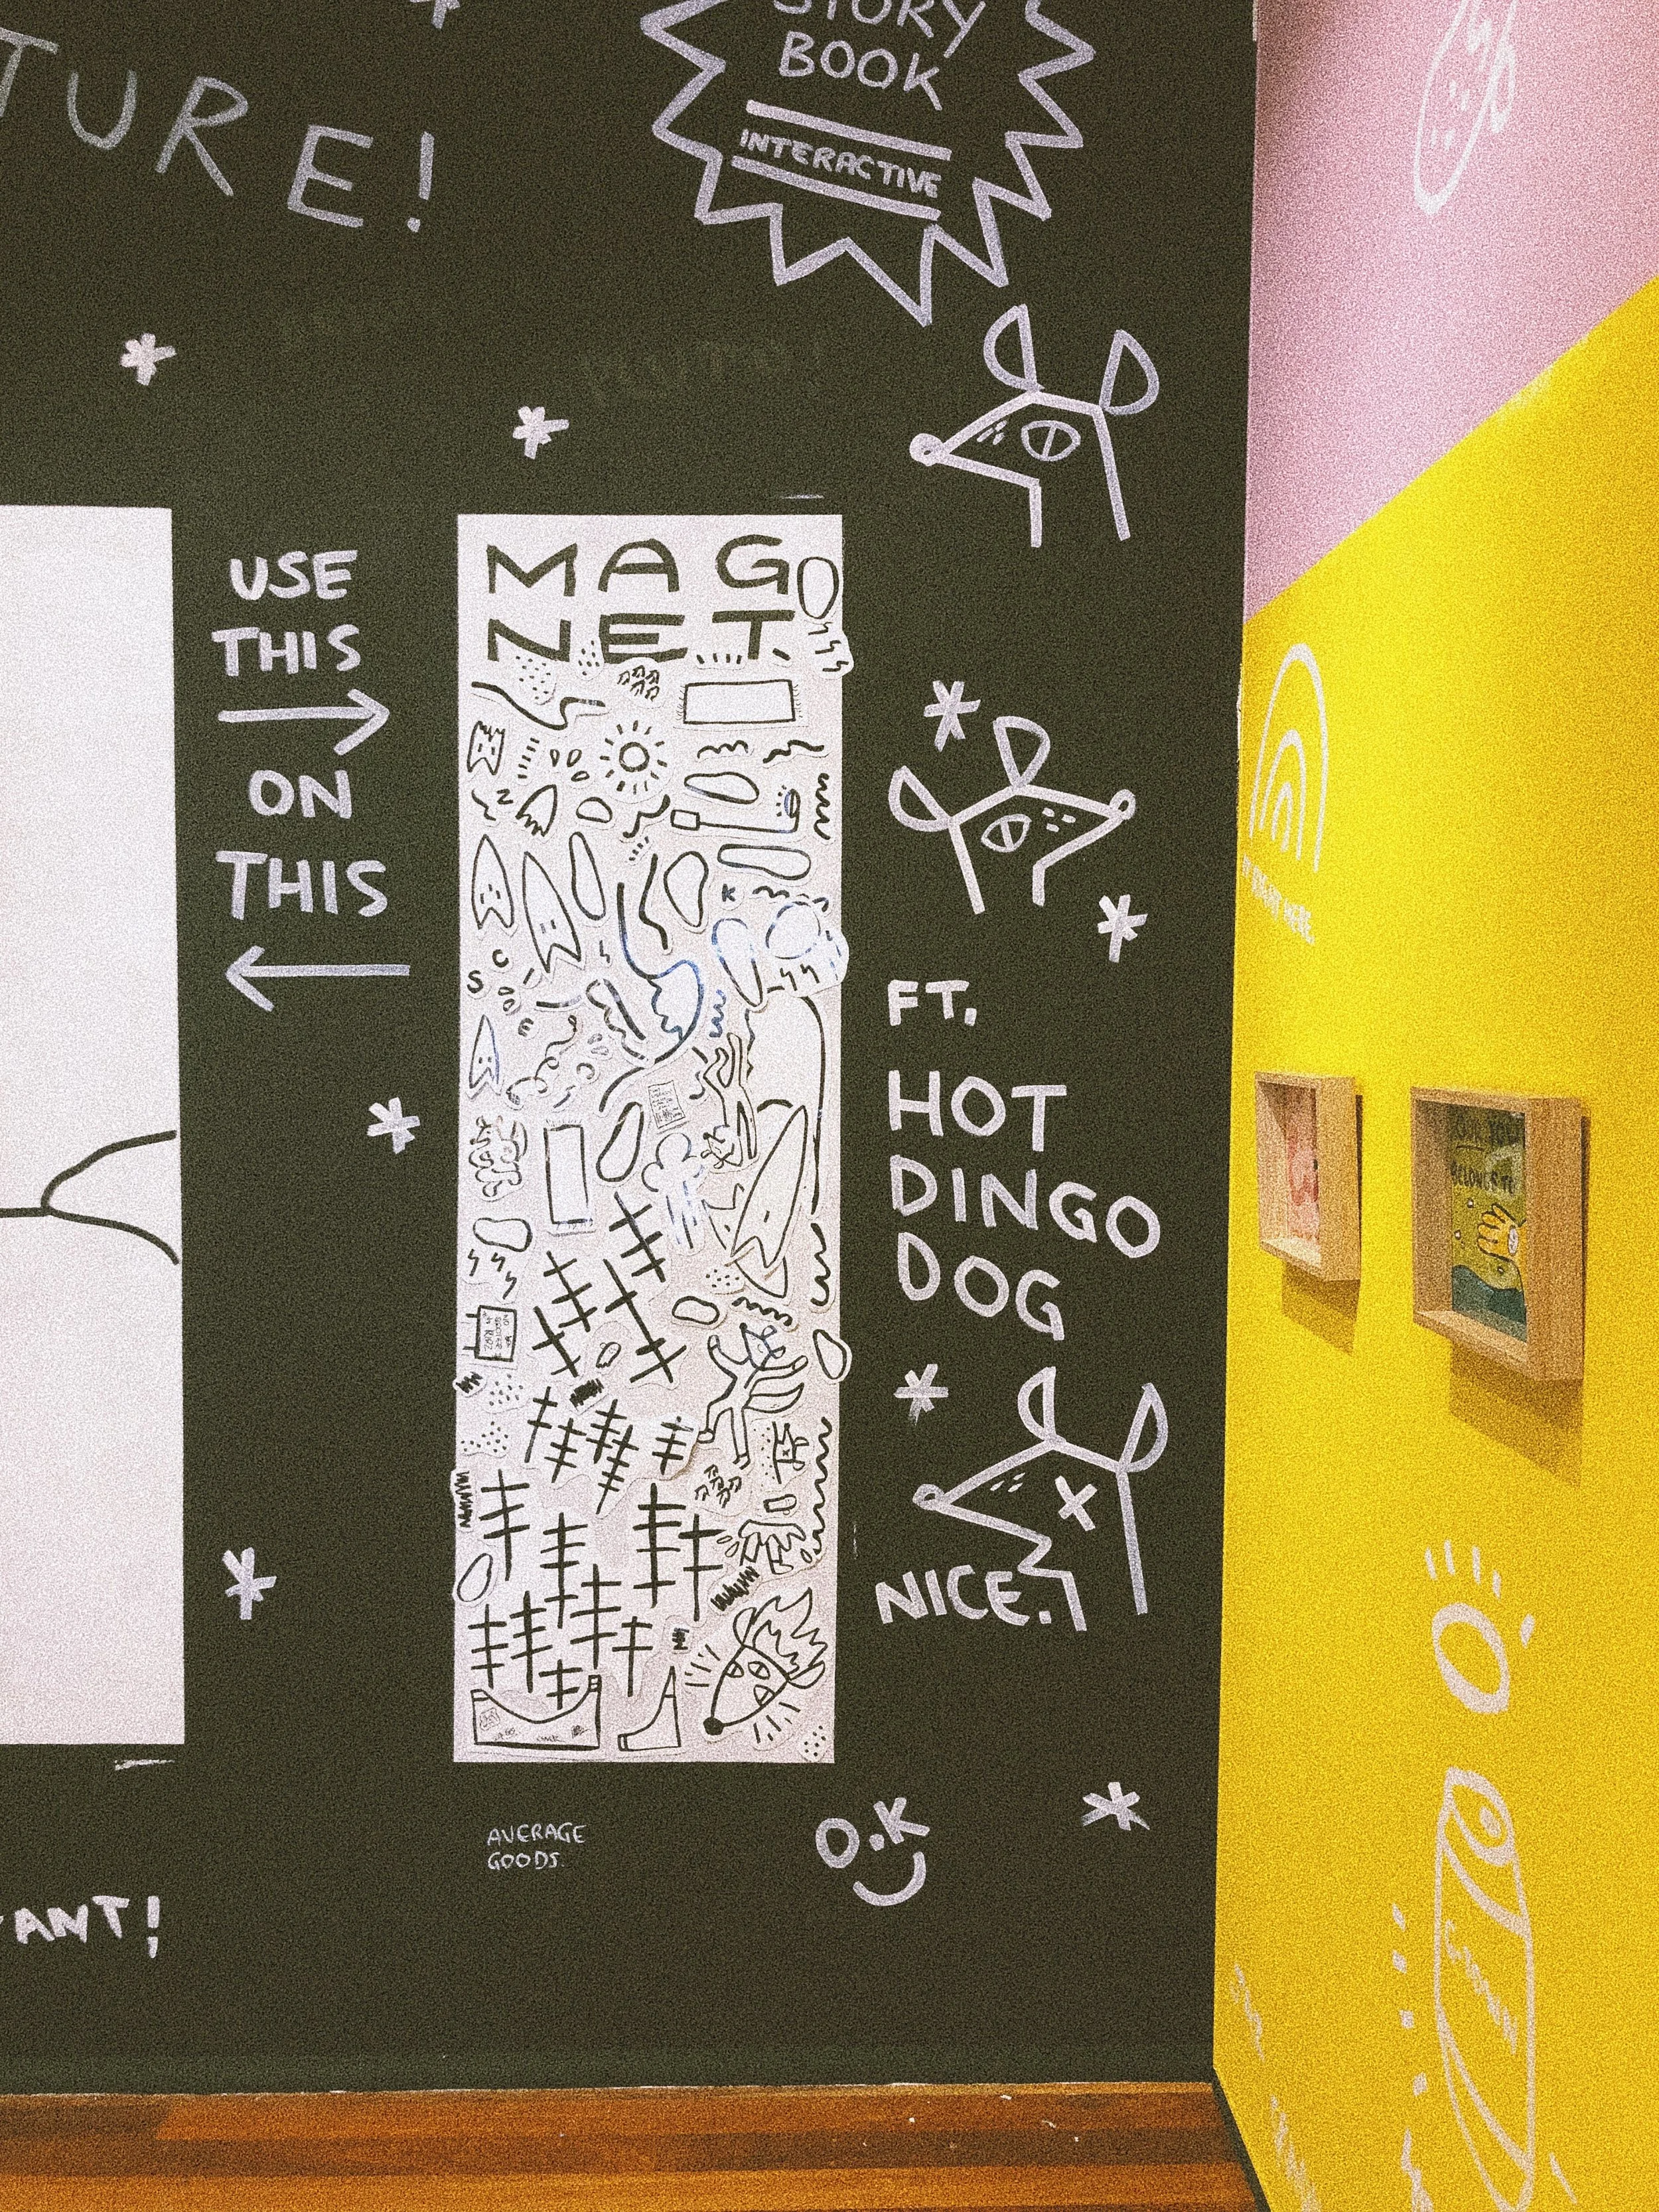 STORY
BOOK
INTERACTIVE
TURE!
USE
THIS
ON
THIS
MAG
NET.
FT.
HOT
DINGO
DOG
NICE.
AVERAGE
GOODS.
O.K
ANT!